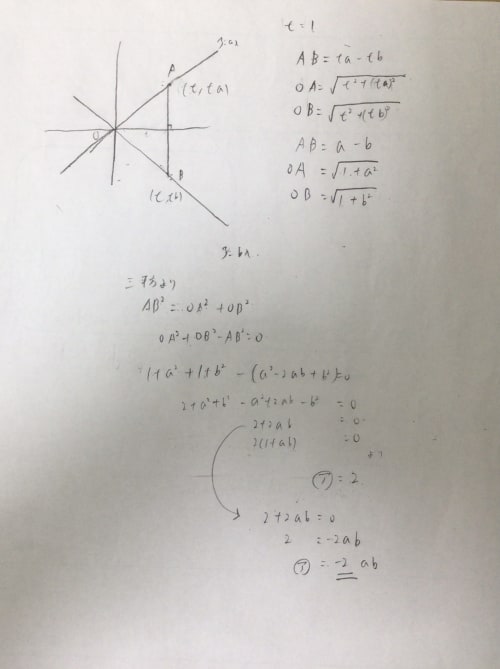 t = 1
y=ax
A
(t, ta)
O
t
B
(t, tb)
y=bx
AB = ta - tb
OA = √t²+(ta)²
OB = √t²+(tb)²
AB = a - b
OA = √1+a²
OB = √1+b²
三平方より
AB² = OA² + OB²
OA²+OB²-AB²=0
1+a²+1+b² - (a²-2ab+b²)=0
2+a²+b² - a²+2ab - b² = 0
2+2ab = 0
2(1+ab) = 0
より
ア = 2
2+2ab = 0
2 = -2ab
ア = -2 ab